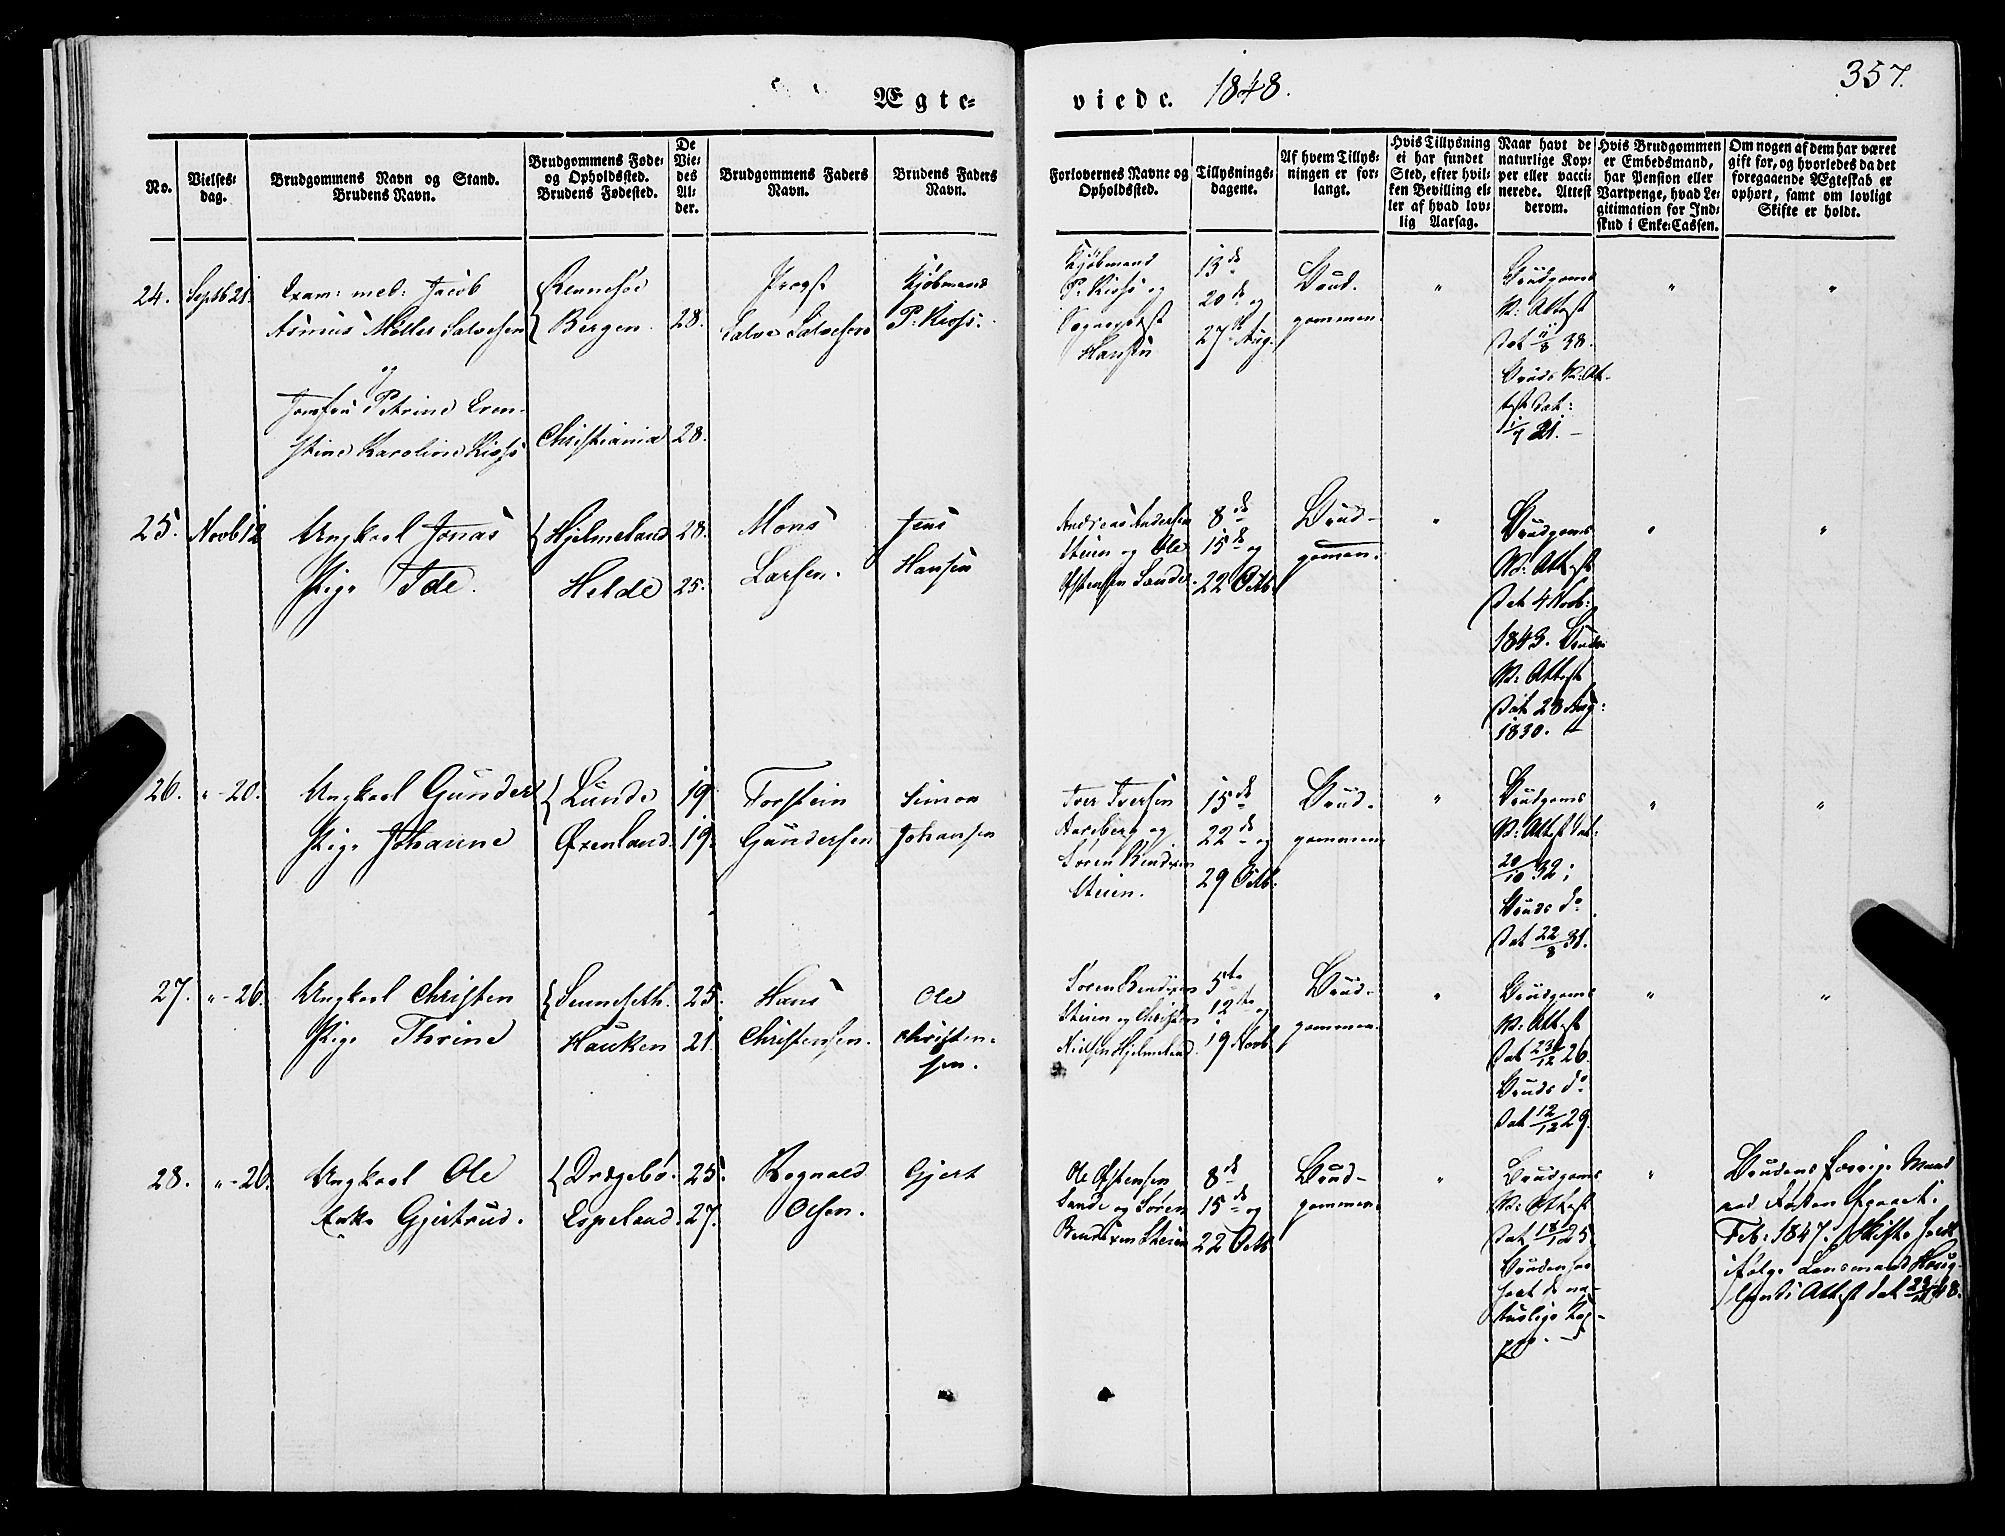 Ægte-
viede. 1848.
357.
No.
Vielses-
dag.
Brudgommens Navn og Stand.
Brudens Navn.
Brudgommens Føde-
og Opholdssted.
Brudens Fødested.
De
Vie-
des
Al-
der.
Brudgommens Faders
Navn.
Brudens Faders
Navn.
Forlovernes Navne og
Opholdssted.
Tillysnings-
dagene.
Af hvem Tillys-
ningen er for-
langt.
Hvis Tillysning
ei har fundet
Sted, efter hvil-
ken Bevilling el-
ler af hvad lov-
lig Aarsag.
Naar havt de
naturlige Kop-
per eller vacci-
nerede. Attest
derom.
Hvis Brudgommen
er Embedsmand,
har Pension eller
Vartpenge, hvad Le-
gitimation for Ind-
skud i Enke-Cassen.
Om nogen af dem har været
gift før, og hvorledes da det
foregaaende Ægteskab er
ophørt, samt om lovligt
Skifte er holdt.
24.
Septb 21.
Exam: med: Jacob
Asmus Møller Salvesen
og
Jomfru Petrine Ern-
stine Karoline Kioss
Rennesøe
Bergen.
Christiania
28.
28.
Provst
Salve Salvesen
Kjøbmand
P. Kioss.
Kjøbmand
P. Kioss og
Sogneprest
Hansen
13de
20de og
27de Aug.
Brud-
gommen.
"
Brudgoms
V: Attest
dat 11/8 38.
Bruds V: At-
test dat:
1/7 21. –
"
"
25.
Novb 12
Ungkarl Jonas
Pige Ide.
Hjelmeland
Helde
28.
25.
Mons
Larsen.
Jens
Hansen
Andreas Andersen
Steien og Ole
Østensen Sande.
8de
15de og
22 Octb
Brud-
gommen.
"
Brudgoms
V: Attest
dat 4 Novb:
1843. Bruds
V: Attest
dat 28 Aug:
1830.
"
"
26.
" - 20.
Ungkarl Gunder
Pige Johanne
Lunde
Øxenland.
19
19.
Torstein
Gundersen
Simon
Johansen
Iver Iversen
Aareberg og
Søren Bendixen
Steien.
15de
22de og
29 Octb:
Brud-
gommen
"
Brudgoms
V: Attest dat:
20/10 32;
Bruds do
dat 22/8 31.
"
"
27.
" - 26.
Ungkarl Christen
Pige Thrine
Sunnseth.
Hauken
25.
21.
Hans
Christensen.
Ole
Christen-
sen.
Søren Bendixen
Steien og Christen
Nielsen Hjelmeland.
5te
12te og
19 Novb
Brud-
gommen.
"
Brudgoms
V: Attest
dat 23/12 26.
Bruds do
dat 12/12 29.
"
"
28.
" - 26.
Ungkarl Ole
Enke Gjertrud.
Drægebø.
Espeland.
25.
27.
Rognald
Olsen.
Gjert
Ole Østensen
Sande og Søren
Bendixen Steien
8de
15de og
22 Octb
Brud-
gommen.
"
Brudgoms
V: Attest
dat 18/12 25
Bruden har
havt de na-
turlige Kop-
per.
"
Brudens forrige Mand
Feb: 1847. Skifte holdt
ifølge Lensmand
Attest dat